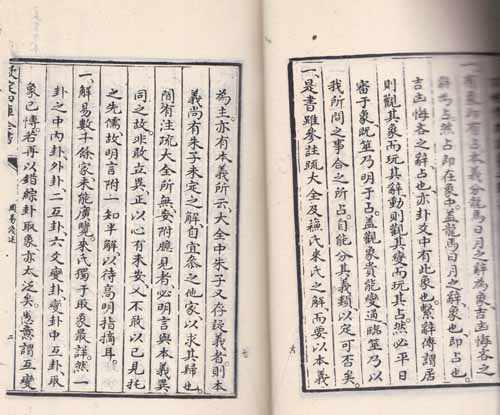 一有象即有占本義分龍馬日月之辭為象吉凶悔吝之
辭為占然占即在象中蓋龍馬日月之辭象也即占也
吉凶悔吝之辭占也亦卦爻中有此象也繫辭傳謂居
則觀其象而玩其辭動則觀其變而玩其占然必平日
審于象既筮乃明于占蓋觀象貴能變通臨筮乃以
我所問之事合之所占自能分其義類以定可否矣
一是書雖參註疏大全及蘇氏來氏之解而要以本義
為主亦有本義所云大全中朱子又存疑義者則本
義尚有朱子未定之解自宜參之他家以求其歸也
間有注疏大全所無妄附臆見者必明言與本義異
同之故非敢立異正以心有未安又不敢以己見托
之先儒故明言附一知半解以待高明指摘耳
一解易數千餘家未能廣覽來氏獨于取象最詳然一
卦之中內卦外卦二互卦六爻變卦變卦中互卦取
象已博若再以錯綜卦取象亦太泛矣愚意謂互變
周易淺述
二